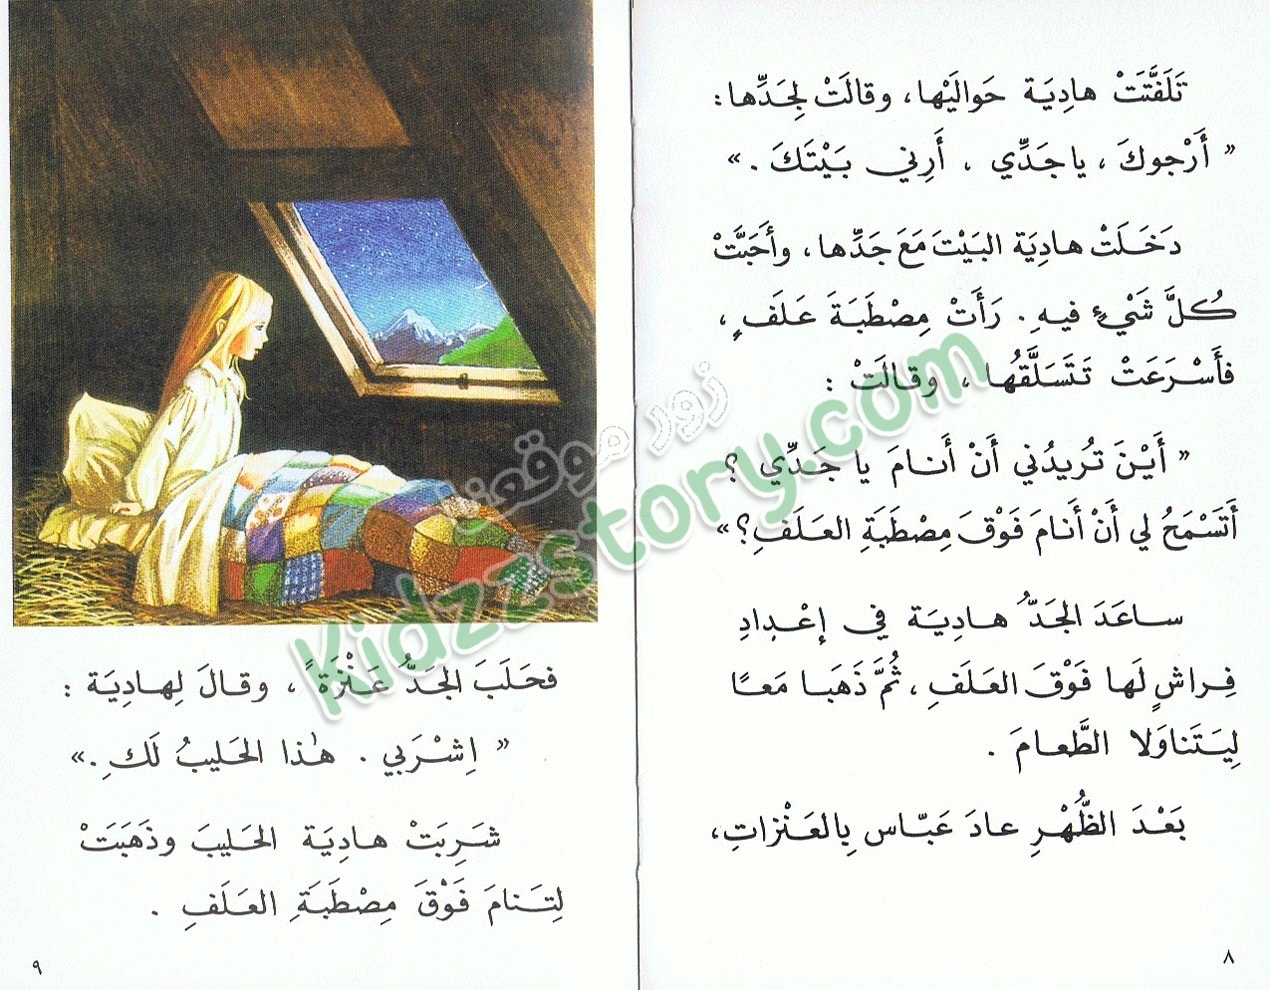 تَلَفَّتَتْ هادِيَة حَوالَيْها، وقالَتْ لِجَدِّها:
« أَرْجوكَ ، يا جَدِّي ، أَرِني بَيْتَكَ . »
دَخَلَتْ هادِيَة البَيْتَ مَعَ جَدِّها، وأَحَبَّتْ
كُلَّ شَيْءٍ فيهِ. رَأَتْ مِصْطَبَةَ عَلَفٍ،
فأَسْرَعَتْ تَتَسَلَّقُها ، وقالَتْ :
« أَيْنَ تُريدُني أَنْ أَنامَ يا جَدِّي ؟
أَتَسْمَحُ لي أَنْ أَنامَ فَوْقَ مِصْطَبَةِ العَلَفِ؟ »
ساعَدَ الجَدُّ هادِيَة في إعْدادِ
فِراشٍ لَها فَوْقَ العَلَفِ ، ثُمَّ ذَهَبا مَعًا
لِيَتَناوَلا الطَّعامَ .
بَعْدَ الظُّهْرِ عادَ عَبّاس بِالعَنْزاتِ،
٨
فحَلَبَ الجَدُّ عَنْزَةً ، وقالَ لِهادِيَة :
« اِشْرَبي . هٰذا الحَليبُ لَكِ . »
شَرِبَتْ هادِيَة الحَليبَ وذَهَبَتْ
لِتَنامَ فَوْقَ مِصْطَبَةِ العَلَفِ .
٩
زوروا موقعنا
Kidzzstory.com